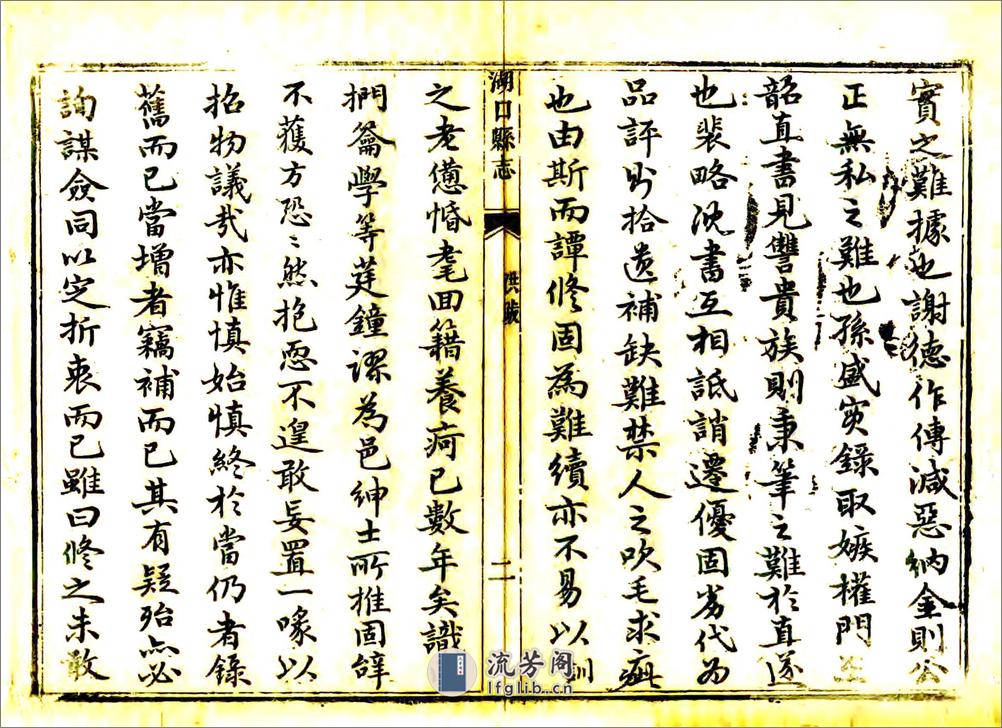 實之難據也謝德作傳減惡納金則公
正無私之難也孫盛實錄取嫉權門王
韶直書見讐貴族則秉筆之難於直遂
也裴略沈書互相詆誚遷優固劣代為
品評則拾遺補缺難禁人之吹毛求疵
也由斯而譚修固為難續亦不易以訓
湖口縣志
二
之老憊惛耄回籍養疴已數年矣識
捫籥學等莛鐘謬為邑紳士所推固辭
不獲方恐恐然抱恧不遑敢妄置一喙以
招物議哉亦惟慎始慎終於當仍者錄
舊而已當增者竊補而已其有疑殆亦必
詢謀僉同以定折衷而已雖曰修之未敢
流芳阁
lfglib.cn